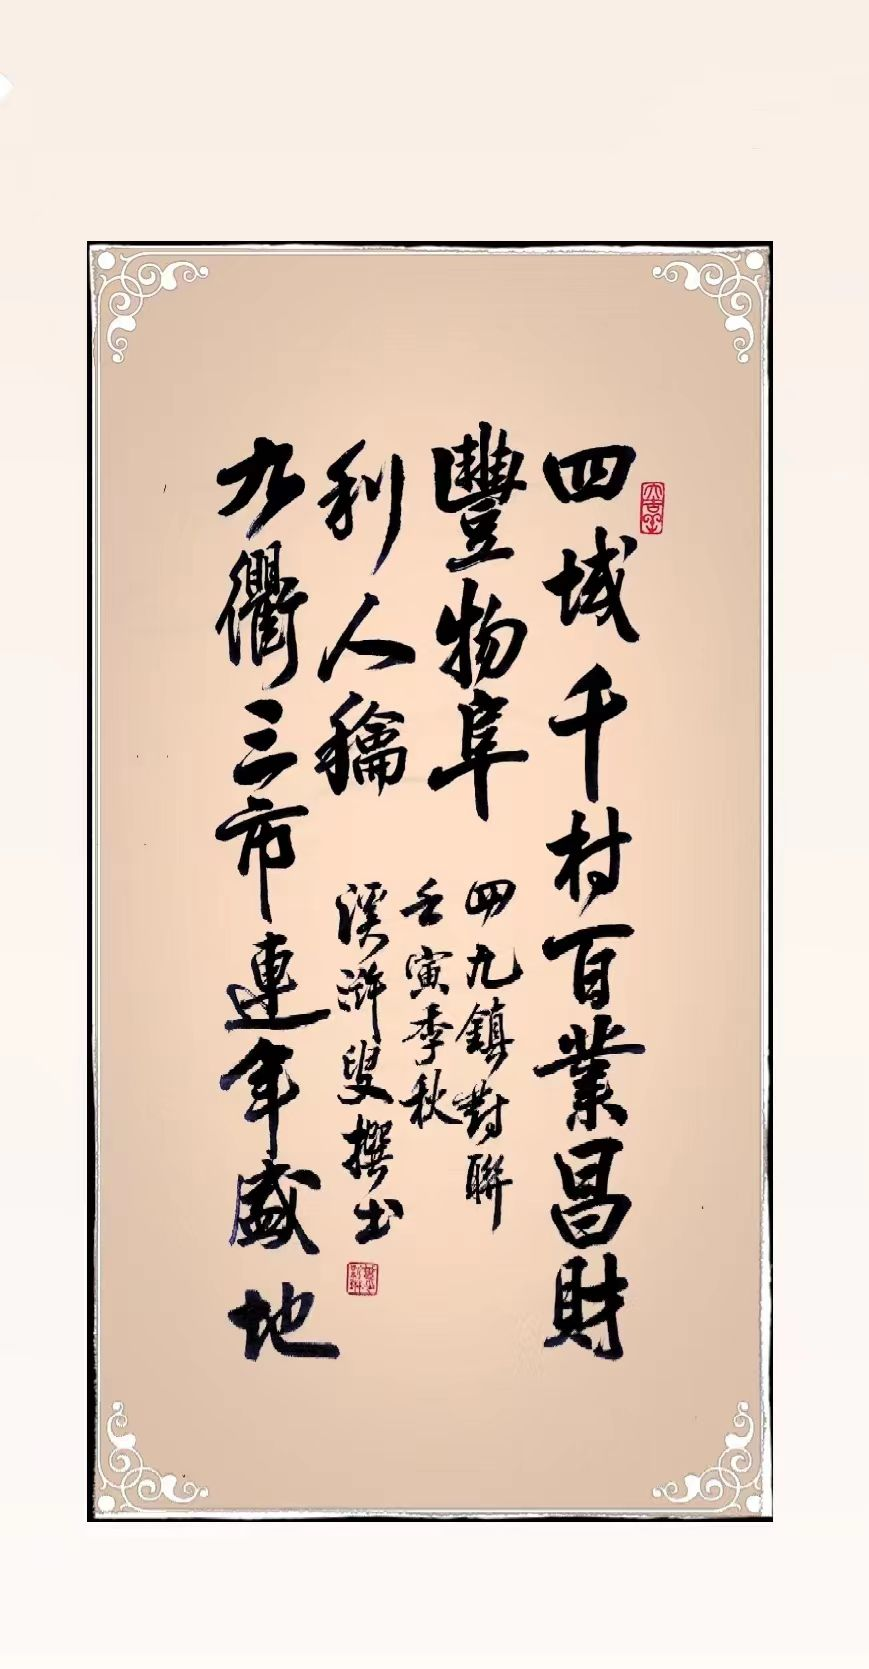 四域千村百業昌財
豐物阜
九衢三市連年盛地
利人龢
四九鎮對聯
壬寅季秋
溪滸叟撰书